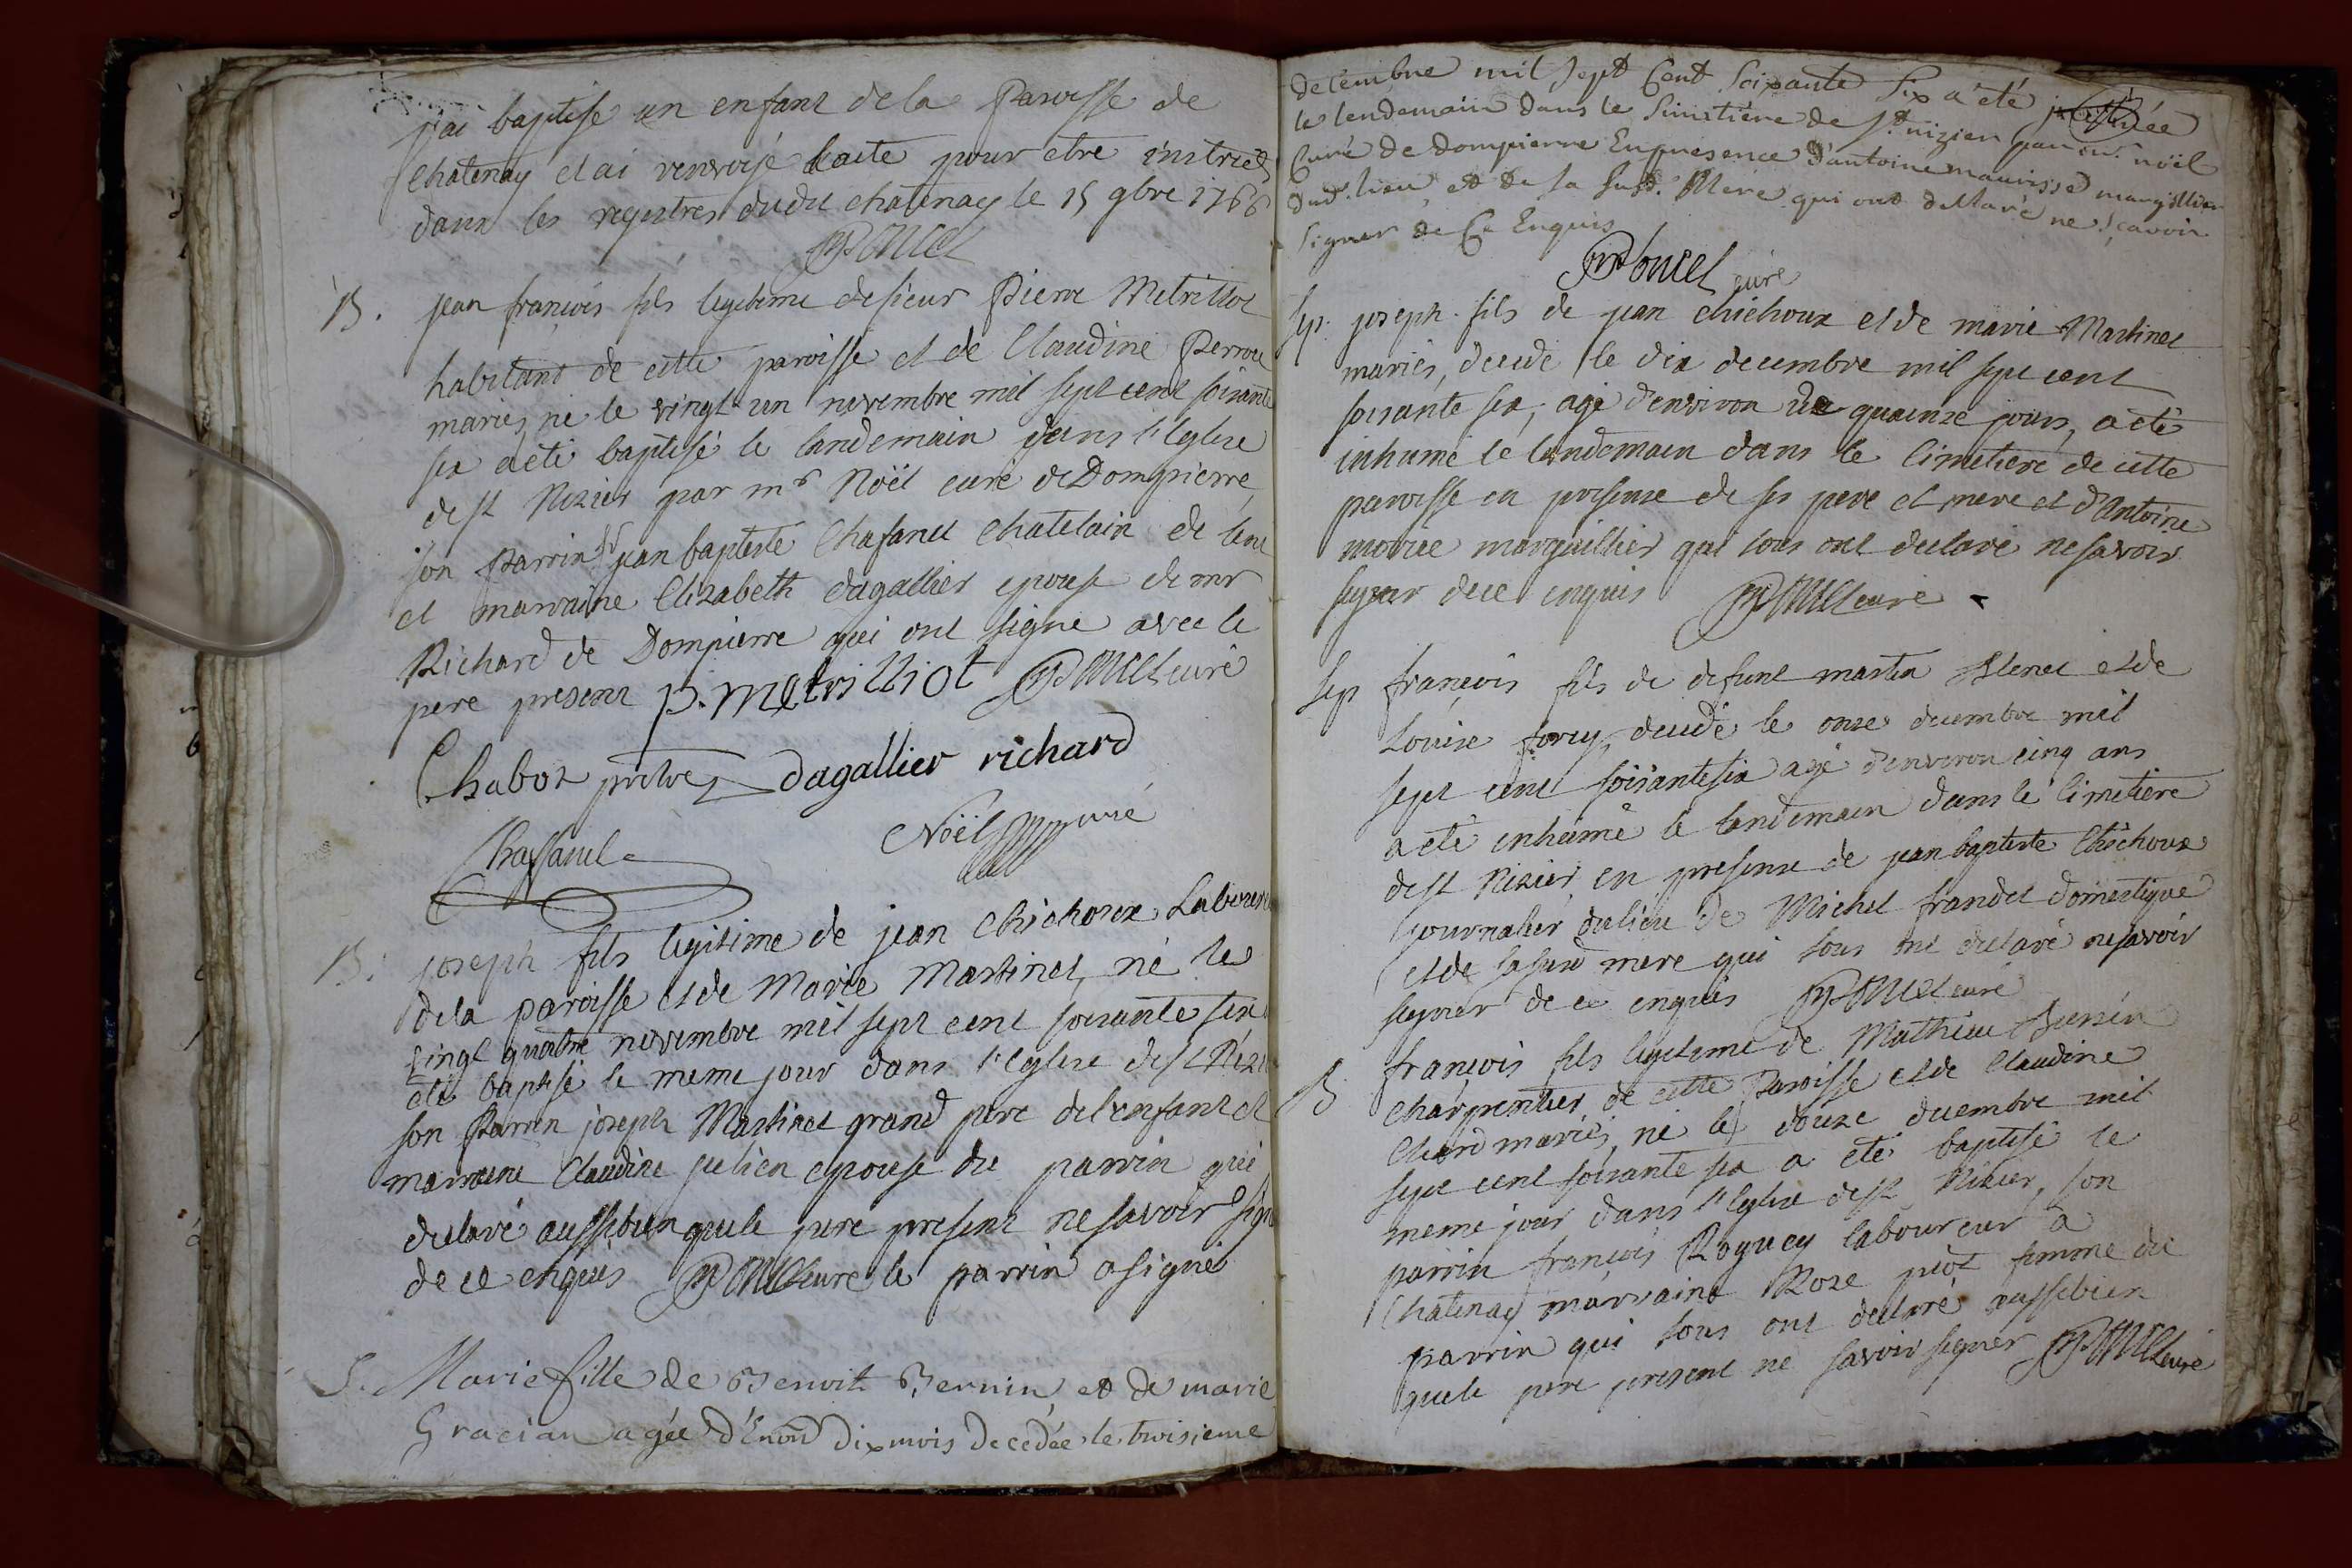 j'ai baptisé un enfant de la Paroisse de
Chatenay et ai renvoyé l'acte pour etre inscrit
dans les registres dudit chatenay le 15 9bre 1766
Poncet
B. jean françois fils legitime de sieur Pierre Metrillot
habitant de cette paroisse et de Claudine Perroud
mariés, né le vingt un novembre mil sept cent soixante
six a été baptisé le landemain dans l'Eglise
de st Nizier par mr Noël curé de Dompierre,
son Parrin sr jean baptiste Chafanel Chatelain de
et marraine Elizabeth dagallier epouse de mr
Richard de Dompierre qui ont signé avec le
pere present p. metrilliot Poncet curé
Chabot prêtre dagallier richard
Chassanel Noël curé
B. joseph fils legitime de jean Chichoux Laboureur
de la paroisse et de Marie Martinet, né le
vingt quatre novembre mil sept cent soixante six
été baptisé le meme jour dans l'Eglise de st Nizi
son Parrin joseph Martinet grand pere de l'enfant et
marraine Claudine julien epouse du parrin qui
declaré aussi bien que le pere present ne savoir sign
de ce enquis Poncet curé le parrin a signé
S. Marie fille de Benoit Bernin et de marie
Gracian agée d'Env dix mois decedée le troisieme
decembre mil sept Cent Soixante Six a été
le lendemain dans le Simitière de st nizier par mr noël
Curé de Dompierre En presence d'antoine maurisse margillier
dud. lieu et de sa susd. Mère qui ont dellaré ne sçavoir
signer de Ce Enquis
Poncet curé
sep. joseph fils de jean chichoux et de marie Martinet
mariés, decedé le dix decembre mil sept cent
soixante six, agé d'environ quainze jours, a été
inhumé le landemain dans le Cimetiere de cette
paroisse en presense de ses pere et mere et d'Antoine
morice marguillier qui tous ont declaré ne savoir
signer de ce enquis Poncet curé
sep françois fils de defunt martin Blenet et de
Louise forey, decedé le onze decembre mil
sept cent soixante six agé d'environ cinq ans
a été inhumé le landemain dans le Cimetiere
de st Nizier, en presense de jean baptiste Chichoux
journalier du lieu de Michel frandet domestique
et de sa susd mere qui tous ont declaré ne savoir
signer de ce enquis Poncet curé
B françois fils legitime de Mathieu
charpentier de cette Paroisse et de Claudine
mariés, né le douze decembre mil
sept cent soixante six a eté baptisé le
meme jour dans l'Eglise de st Nizier, son
parrin françois Roguey laboureur a
Chatenay marraine Roze piot femme du
parrin qui tous ont declaré aussi bien
que le pere present ne savoir signer Poncet curé